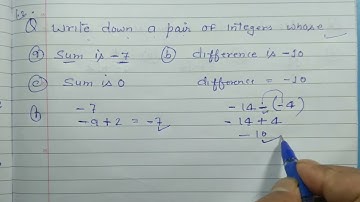 Q Write down a pair of integers whose
(a) Sum is -7 (b) difference is -10
(c) Sum is 0 difference = -10
-7 -14 - (-4)
-9+2 = -7 -14 + 4
-10